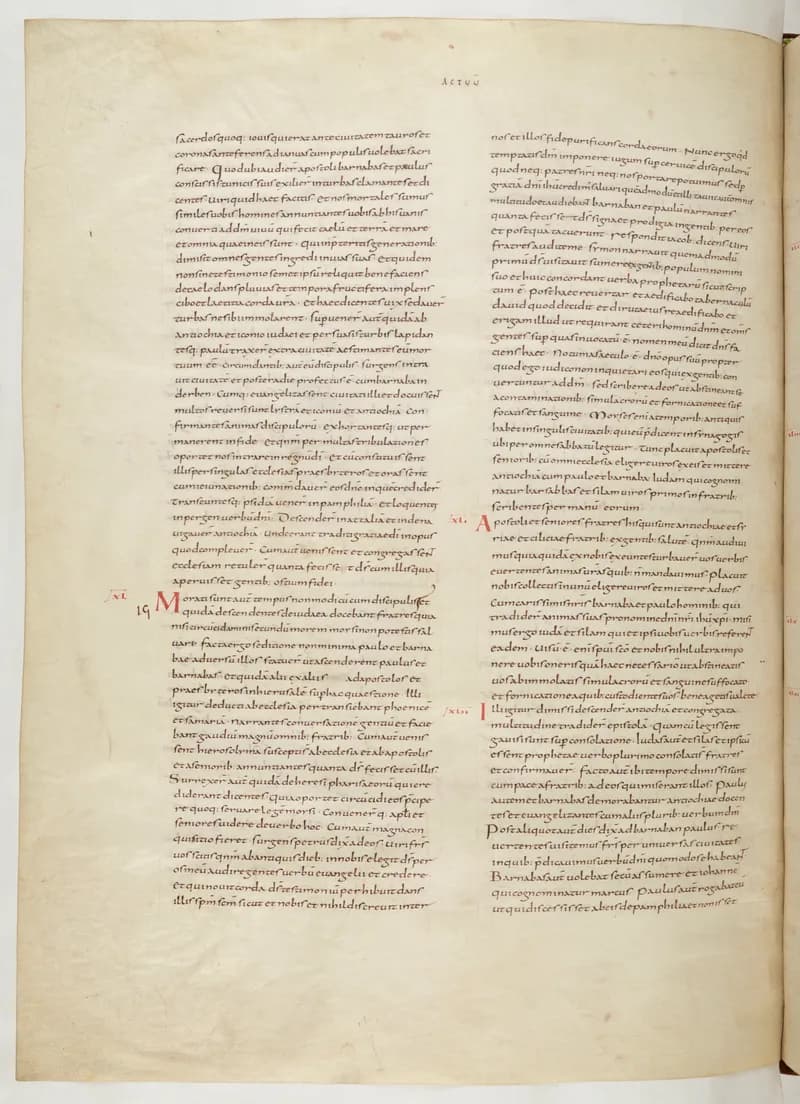 ACTUŪ
sacerdosquoq; iouis qui erat ante ciuitatem tauros et
coronas ante ferens ad ianuas cum populis uolebat sacri
ficare. Quod ubi audier apostoli barnabas et paulus
conscissis tunicis suis exilier in turbas clamantes et di
centes uiri quid haec facitis et nos mortales sumus
similes uobis homines annuntiantes uobis ab his uanis
conuerti ad dm̄ uiuū qui fecit caelū et terra et mare
et omnia quae in eis sunt. qui in pteritis generationib;
dimisit omnes gentes ingredi in uias suas et quidem
non sine testimonio semet ipsū reliquit benefaciens
de caelo dans pluuias et tempora fructifera implens
cibo et laetitia corda ūra. et haec dicentes uix sedauer
turbas ne sibi immolarent. supuener aut quidā ab
antiochia et iconio iudaei et persuasis turbis lapidan
tesq; paulū traxer extra ciuitatē aestimantes eū mor
tuum eē. circumdantib; aut eū discipulis surgens intra
uit ciuitate et postera die profectus ē cum barnaba in
derben. Cumq; euangelizassent ciuitati illi et docuissent
multos reuersi sunt lystra et iconiū et antiochiā con
firmantes animas discipulorū exhortantesq; ut per
manerent in fide. et qnm per multas tribulationes
oportet nos intrare in regnū di. et cū constituissent
illis per singulas ecclesias praesbiteros et orassent
cum ieiunationib; commdauer eos dno in quē credider
transeuntesq; psidiā uener in pamphiliā. et loquentes
in pergen uerbū dni. Descender in attaliā et inde na
uigauer antiochia. unde erant traditi gratiae di in opus
quod compleuer. Cum aut uenissent et congregassent
ecclesiam retuler quanta fecisset ds cum illis quia
aperuisset gentib; ostium fidei.
XL
Morati sunt aut tempus non modicū cum discipulis. Et
quidā descendentes de iudaea docebant fratres quia
nisi circumcidamini secundū morem mosi non potestis sal
uare. facta ergo seditione non minima paulo et barna
bae aduersū illos statuer ut ascenderent paulus et
barnabas et quidā alii ex aliis ad apostolos et
praesbiteros in hierusalē sup hac quaestione. Illi
igitur deducti ab ecclesia pertransiebant phoenicē
et samaria narrantes conuersationē gentiū et facie
bant gaudiū magnū omnib; fratrib; Cum aut uenis
sent hierosolyma suscepti ab ecclesia et ab apostolis
et a seniorib; annuntiantes quanta ds fecisset cū illis.
Surrexer aut quidā de heresi pharisaeorū qui cre
diderant dicentes quia oportet circūcidi eos pcipe
re quoq; seruare legē mosi. Conuenerq; apli et
seniores uidere de uerbo hoc. Cum aut magna con
quisitio fieret surgens petrus dix ad eos. Uiri frs
uos scitis qnm ab antiquis dieb; in nobis elegit ds per
os meū audire gentes uerbū euangelii et credere
et qui nouit corda ds testimoniū perhibuit dans
illis spm scm sicut et nobis et nihil discreuit inter
nos et illos fide purificans corda eorum. Nunc ergo qd
temptatis dm imponere iugum sup ceruicē discipulorū
quod neq; patres nri neq; nos portare potuimus sed p
gratiā dni ihu credim saluari quēadmodū et illi tacuit aut omnis
multitudo et audiebat barnaban et paulū narrantes
quanta fecisset ds signa et prodigia in gentib; per eos
et postqua tacuerunt respondit iacob; dicens Uiri
fratres audite me. symon narrauit quemadmodū
primū ds uisitauit sumere ex gentib; populum nomini
suo et huic concordant uerba prophetarū sicut scrip
tum ē. post haec reuertar et aedificabo tabernaculū
dauid quod decidit et diruta eius reaedificabo et
erigam illud ut requirant ceteri hominū dnm et omnes
gentes sup quas inuocatū ē nomen meū dicit dns fa
ciens haec. Notum a saeculo ē dno opus suū propter
quod ego iudico non inquietari eos qui ex gentib; con
uertuntur ad dm. sed scribere ad eos ut abstineant se
a contaminationib; simulacrorū et fornicatione et suf
focatis et sanguine. Moses enī a temporib; antiquis
habet in singulis ciuitatib; qui eū pdicent in synagogis
ubi per omne sabbatū legitur. Tunc placuit apostolis et
seniorib; cū omni ecclesia eligere uiros ex eis et mittere
antiochiā cum paulo et barnaba. Iudam qui cognomi
natur barsabbas et silam uiros primos in fratrib;
scribentes per manū eorum.
XLI.
Apostoli et seniores fratres his qui sunt antiochiae et sy
riae et ciliciae fratrib; ex gentib; salutē. qnm audiui
mus quia quidā ex nobis exeuntes turbauer uos uerbis
euertentes animas uras quib; n mandauimus. Placuit
nobis collectis in unū eligere uiros et mittere ad uos
Cum carissimis nris barnaba et paulo hominib; qui
tradider animas suas pro nomine dni nri ihu xpi. misi
mus ergo iudā et silam qui et ipsi uobis uerbis referent
eadem. Uisū ē eni spui sco et nobis nihil ultra impo
nere uobis oneris quā haec necessario ut abstineatis
uos ab immolatis simulacrorū et sanguine suffocato
et fornicatione a quib; custodientes uos bene agetis ualete
XLII
Illi igitur dimissi descender antiochiā et congregata
multitudine tradider epistolā. Quam cū legissent
gauisi sunt sup consolatione. Iudas aut et silas et ipsi cū
essent prophetae uerbo plurimo consolati s fratres
et confirmauer. facto aut ibi tempore dimissi sunt
cum pace a fratrib; ad eos qui miserant illos. Paulus
autem et barnabas demorabantur antiochiae docen
tes et euangelizantes cum aliis plurib; uerbum dni
Post aliquot aut dies dix ad barnaban paulus re
uertentes uisitemus frs per uniuersas ciuitates
in quib; pdicauimus uerbū dni quomodo se habeant
Barnabas aut uolebat secū assumere et iohannē
qui cognominatur marcus Paulus aut rogabat eū
ut qui discessisset ab eis de pamphilia et non isset